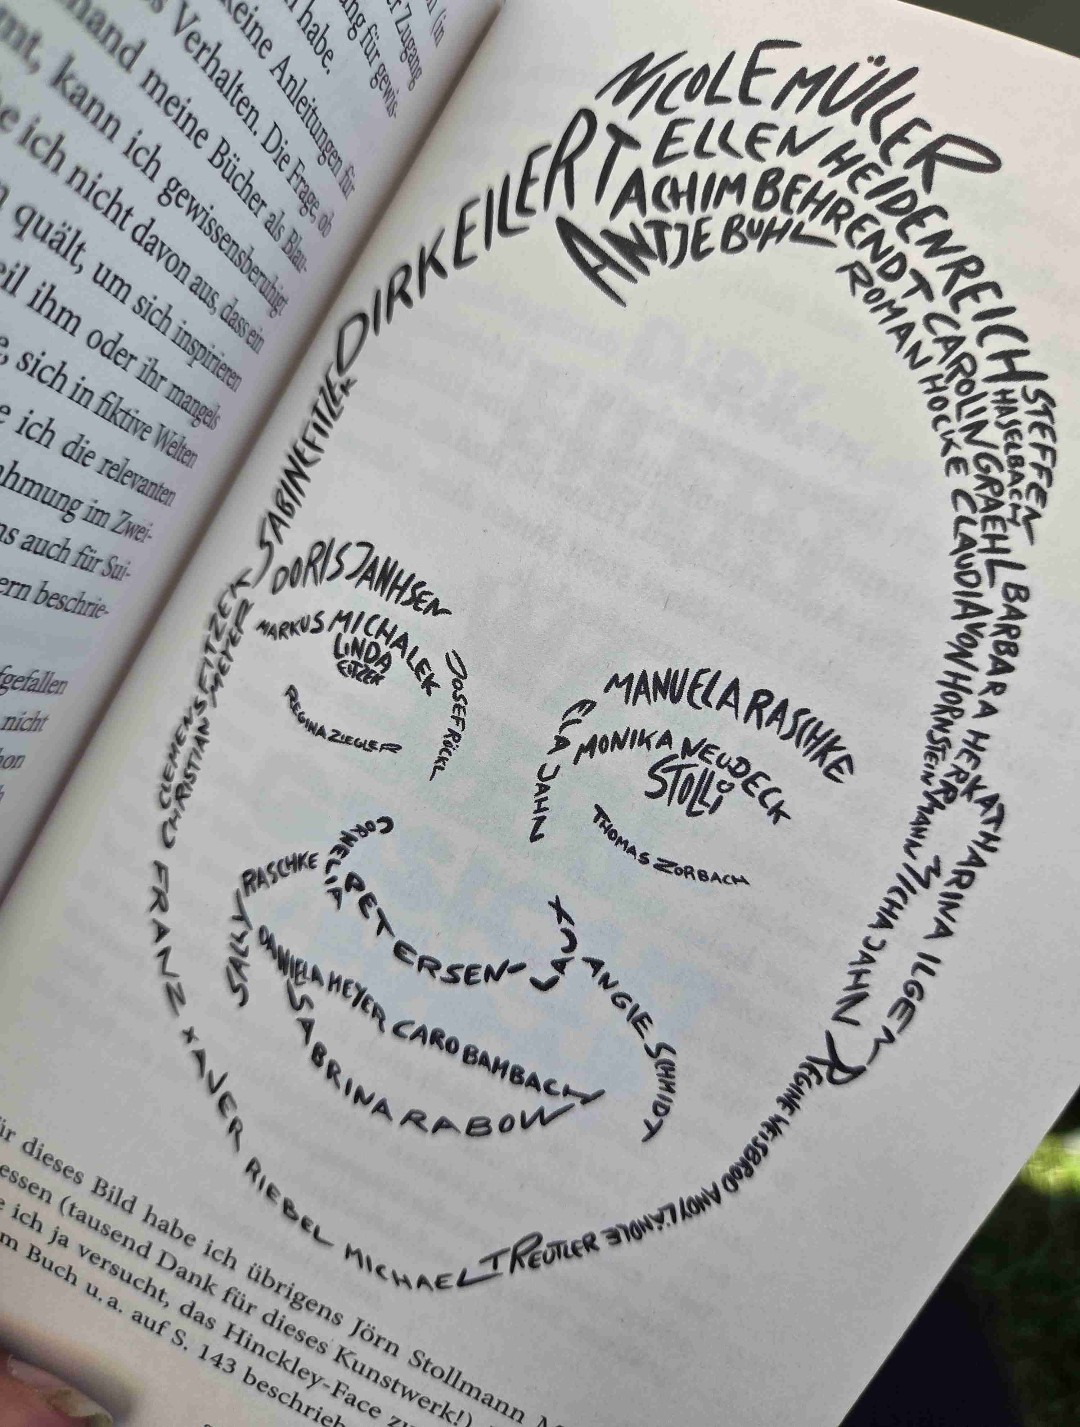 (in
Zugang
ung für gewis-
n habe.
keine Anleitungen für
s Verhalten. Die Frage, ob
mand meine Bücher als Blau-
rnt, kann ich gewissensberuhigt
e ich nicht davon aus, dass ein
quält, um sich inspirieren
eil ihm oder ihr mangels
e, sich in fiktive Welten
e ich die relevanten
ahmung im Zwei-
ns auch für Sui-
ern beschrie-
gefallen
nicht
hon
NICOLE MÜLLER
ELLEN HEIDENREICH
ACHIM BEHRENDT
ANTJE BUHL
DIRK EILERT
ROMAN HOCKE
CAROLIN GRAEHL
STEFFEN
HASELBACH
SABINE FITZEK
CLAUDIA VON HORNSTEIN
BARBARA HERRMANN
KATHARINA ILGEN
MICHA JAHN
DORIS JANHSEN
MARKUS MICHALEK
LINDA
FITZEK
JOSEF RÖCKL
REGINA ZIEGLER
MANUELA RASCHKE
ELA JAHN
MONIKA NEUDECK
STOLLI
THOMAS ZORBACH
CLEMENS FITZEK
CHRISTIAN MEYER
CORNELIA
PETERSEN-
LAUX
SALLY
RASCHKE
ANGIE SCHMIDT
DANIELA MEYER CARO BAMBACH
SABRINA RABOW
FRANZ XAVER RIEBEL
MICHAEL TREUTLER
ANDY LÄNDLE
REGINE WEISBROD
ür dieses Bild habe ich übrigens Jörn Stollmann
essen (tausend Dank für dieses Kunstwerk!)
e ich ja versucht, das Hinckley-Face zu
m Buch u. a. auf S. 143 beschrieb